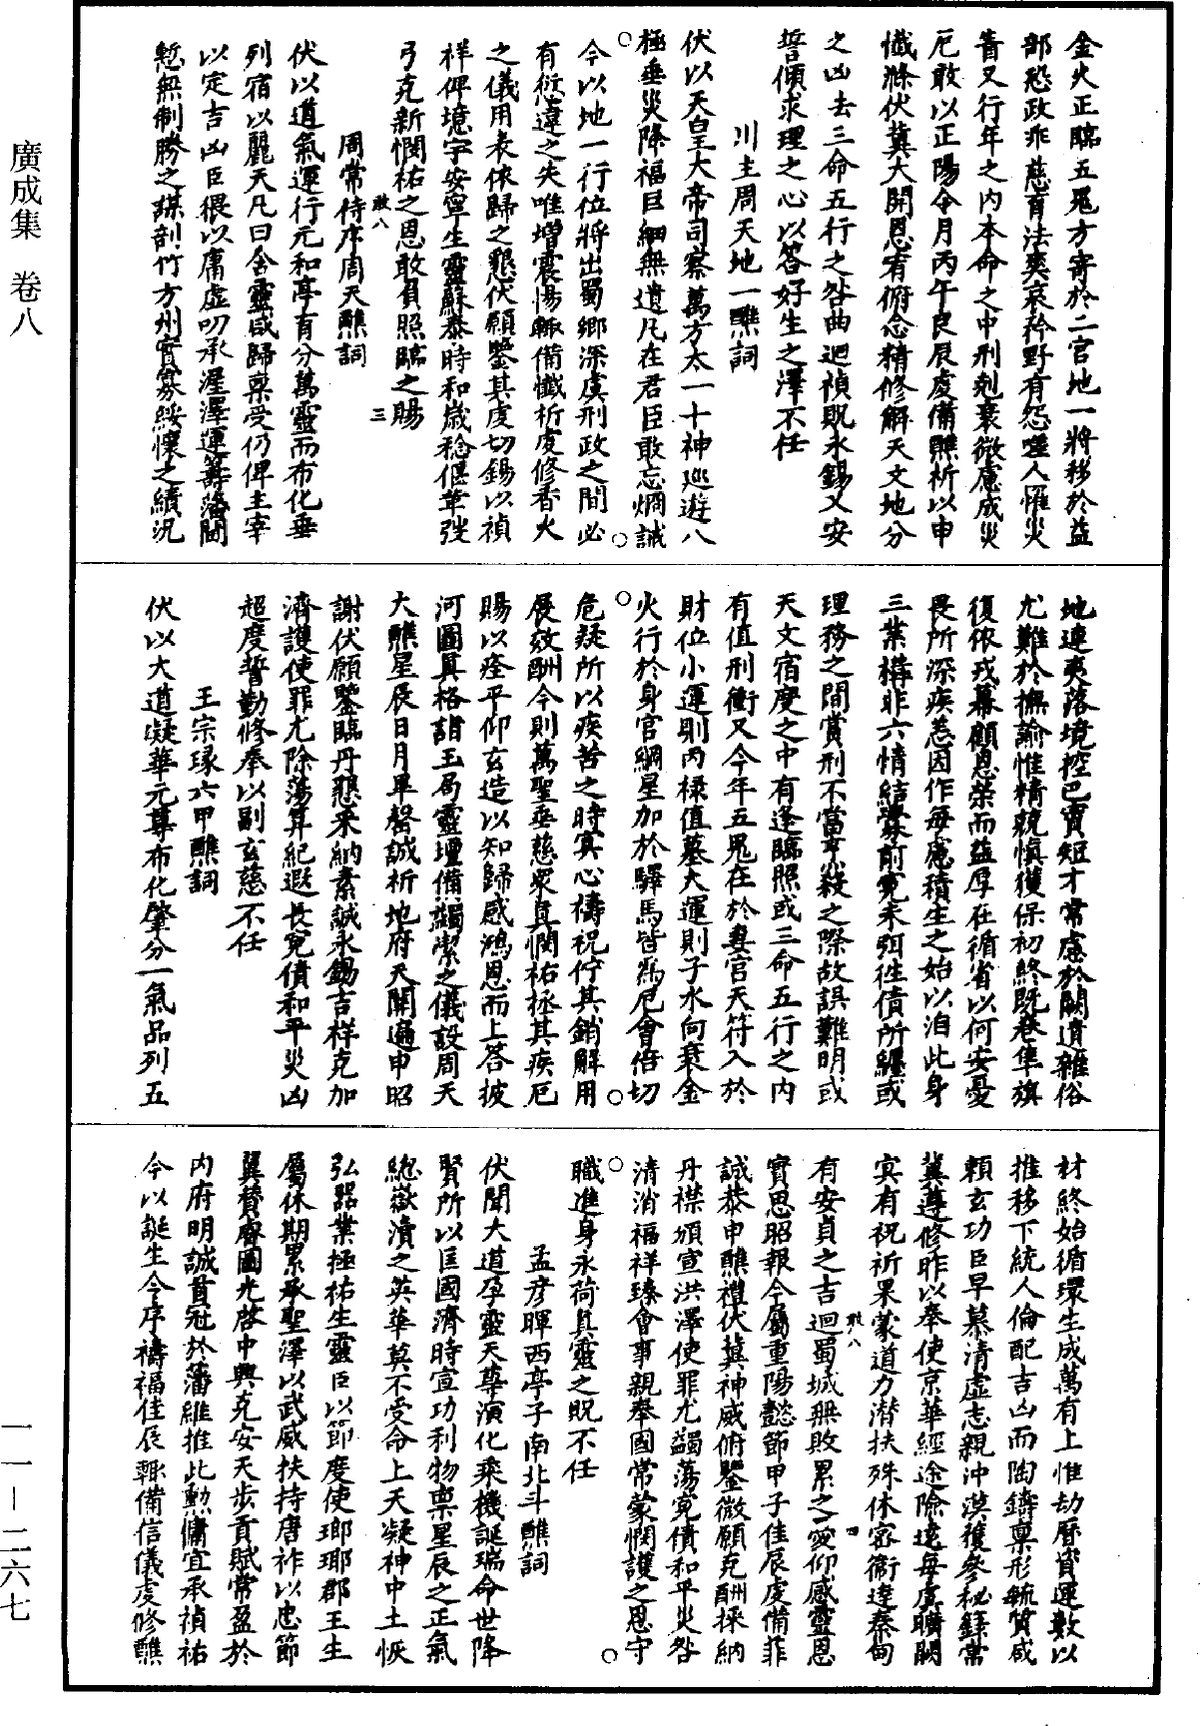 廣成集　卷八
金火正臨五鬼方寄於二宮地一將移於益
部恐政非慈育法爽哀矜野有怨嗟人罹災
眚又行年之內本命之中刑剋衰微慮成災
厄敢以正陽令月丙午良辰虔備醮祈以申
懺滌伏冀大開恩宥俯念精修解天文地分
之凶去三命五行之咎曲迴禎貺永錫乂安
誓傾求理之心以答好生之澤不任
川主周天地一醮詞
伏以天皇大帝司察萬方太一十神巡遊八
極垂災降福巨細無遺凡在君臣敢忘炯誡
今以地一行位將出蜀鄉深虞刑政之間必
有愆違之失唯增震惕輒備懺祈虔修香火
之儀用表依歸之懇伏願鑒其虔切錫以禎
祥俾境宇安寧生靈蘇泰時和歲稔偃革弢
弓克新憫祐之恩敢負照臨之賜
敢八
三
周常侍序周天醮詞
伏以道氣運行元和亭育分萬靈而布化垂
列宿以麗天凡曰含靈咸歸稟受仍俾主宰
以定吉凶臣猥以庸虛叨承渥澤運籌藩閫
慙無制勝之謀剖竹方州實寡綏懷之績況
地連夷落境控巴賨短才常慮於闕遺雜俗
尤難於撫諭惟精兢慎獲保初終既卷隼旟
復依戎幕顧恩榮而益厚在循省以何安憂
畏所深疾恙因作每慮積生之始以洎此身
三業構非六情結釁前冤未弭徃債所纏或
理務之間賞刑不當烹殺之際故誤難明或
天文宿度之中有逢臨照或三命五行之內
有值刑衝又今年五鬼在於妻宮天符入於
財位小運則丙祿值墓大運則子水向衰金
火行於身宮綱星加於驛馬皆爲厄會倍切
危疑所以疾苦之時冥心禱祝佇其銷解用
展效酬今則萬聖垂慈衆真憫祐拯其疾厄
賜以痊平仰玄造以知歸感鴻恩而上答披
河圖真格詣玉局靈壇備蠲潔之儀設周天
大醮星辰日月畢罄誠祈地府天關遍申昭
謝伏願鑒臨丹懇采納素誠永錫吉祥克加
濟護使罪尤除蕩算紀遐長冤債和平災凶
超度誓勤修奉以副玄慈不任
王宗瑑六甲醮詞
伏以大道凝華元尊布化肇分一氣品列五
材終始循環生成萬有上惟劫曆資運數以
推移下統人倫配吉凶而陶鑄稟形毓質咸
賴玄功臣早慕清虛志親沖漠獲參秘籙常
冀遵修昨以奉使京華經途險遠每虞曠闕
寘有祝祈果蒙道力潛扶殊休密衞達秦甸
有安貞之吉迴蜀城無敗累之憂仰感靈恩
敢八
四
實思昭報今屬重陽懿節甲子佳辰虔備菲
誠恭申醮禮伏冀神威俯鑒微願克酬採納
丹襟頒宣洪澤使罪尤蠲蕩冤債和平災咎
清消福祥臻會事親奉國常蒙憫護之恩守
職進身永荷真靈之貺不任
孟彥暉西亭子南北斗醮詞
伏聞大道孕靈天尊演化乘機誕瑞命世降
賢所以匡國濟時宣功利物稟星辰之正氣
總嶽瀆之英華莫不受命上天凝神中土恢
弘器業極祐生靈臣以節度使瑯瑘郡王生
屬休期累承聖澤以武威扶持唐祚以忠節
翼贊睿圖光啓中興克安天步貢賦常盈於
內府明誠首冠於藩維推此勲傭宜承禎祐
今以誕生令序禱福佳辰輒備信儀虔修醮
一一—二六七